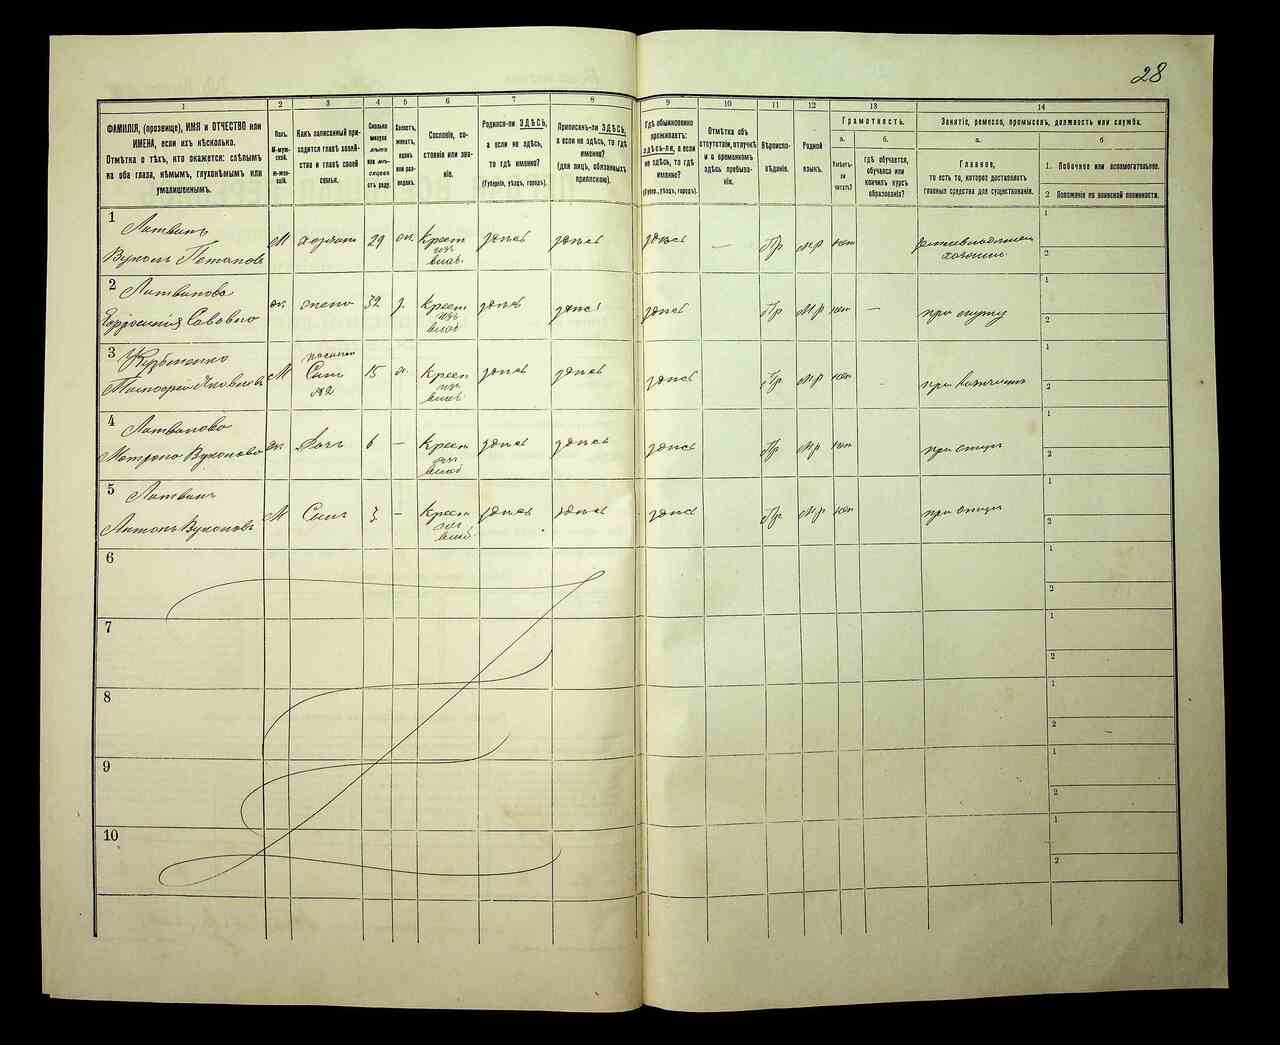 28
1 2 3 4 5 6 7 8 9 10 11 12 13 14
ФАМИЛІЯ, (прозвище), ИМЯ и ОТЧЕСТВО или
ИМЕНА, если ихъ нѣсколько.
Отмѣтка о тѣхъ, кто окажется: слѣпымъ
на оба глаза, нѣмымъ, глухонѣмымъ или
умалишеннымъ.
Полъ.
М-муж-
ской.
Ж-жен-
скій.
Какъ записанный при-
ходится главѣ хозяй-
ства и главѣ своей
семьи.
Сколько
минуло
лѣтъ
или мѣ-
сяцевъ
отъ роду.
Холостъ,
женатъ,
вдовъ
или раз-
веденъ.
Сословіе, со-
стояніе или зва-
ніе.
Родился-ли ЗДѢСЬ,
а если не здѣсь,
то гдѣ именно?
(Губернія, уѣздъ, городъ).
Приписанъ-ли ЗДѢСЬ,
а если не здѣсь, то гдѣ
именно?
(для лицъ, обязанныхъ
припискою).
Гдѣ обыкновенно
проживаетъ:
здѣсь-ли, а если
не здѣсь, то гдѣ
именно?
(Губер., уѣздъ, городъ).
Отмѣтка объ
отсутствіи, отлучкѣ
и о временномъ
здѣсь пребыва-
ніи.
Вѣроиспо-
вѣданіе.
Родной
языкъ.
Грамотность.
а. б.
Умѣетъ-
ли
читать?
гдѣ обучается,
обучался или
кончилъ курсъ
образованія?
Занятіе, ремесло, промыселъ, должность или служба.
а. б
Главное,
то есть то, которое доставляетъ
главныя средства для существованія.
1. Побочное или вспомогательное.
2 Положеніе по воинской повинности.
1
Литвинъ
Вуколъ Потаповъ М хозяинъ 29 ж. Крест. изъ влад. здѣсь здѣсь здѣсь — Пр Мр нѣт земледѣлие
1
2
2
Литвинова
Саввова ж. жена 32 з. Крест. изъ влад. здѣсь здѣсь здѣсь Пр Мр нѣт — при мужу
1
2
3
Яковлевъ М Сынъ №2 15 х. Крест. изъ влад. здѣсь здѣсь здѣсь Пр Мр нѣт
1
2
4
Литвинова
Матрона Вуколова ж. Дочь 6 — Крест. изъ влад. здѣсь здѣсь здѣсь Пр Мр нѣт при отцѣ
1
2
5
Литвинъ
Антонъ Вуколовъ М Сынъ 3 — Крест. изъ влад. здѣсь здѣсь здѣсь Пр Мр нѣт при отцѣ
1
2
6
1
2
7
1
2
8
1
2
9
1
2
10
1
2